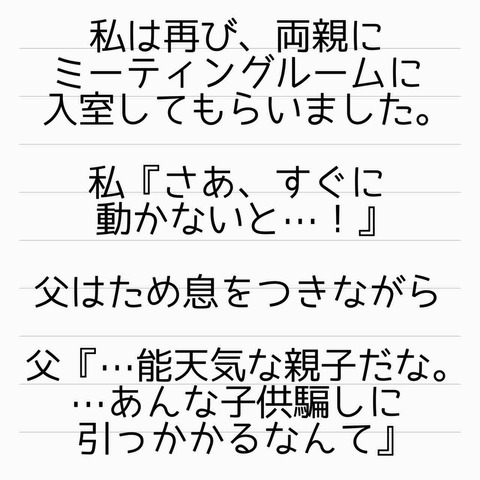 私は再び、両親に
ミーティングルームに
入室してもらいました。
私『さあ、すぐに
動かないと…！』
父はため息をつきながら
父『…能天気な親子だな。
…あんな子供騙しに
引っかかるなんて』